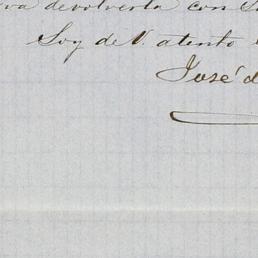 devolverla con
Soy de V. atento
José d